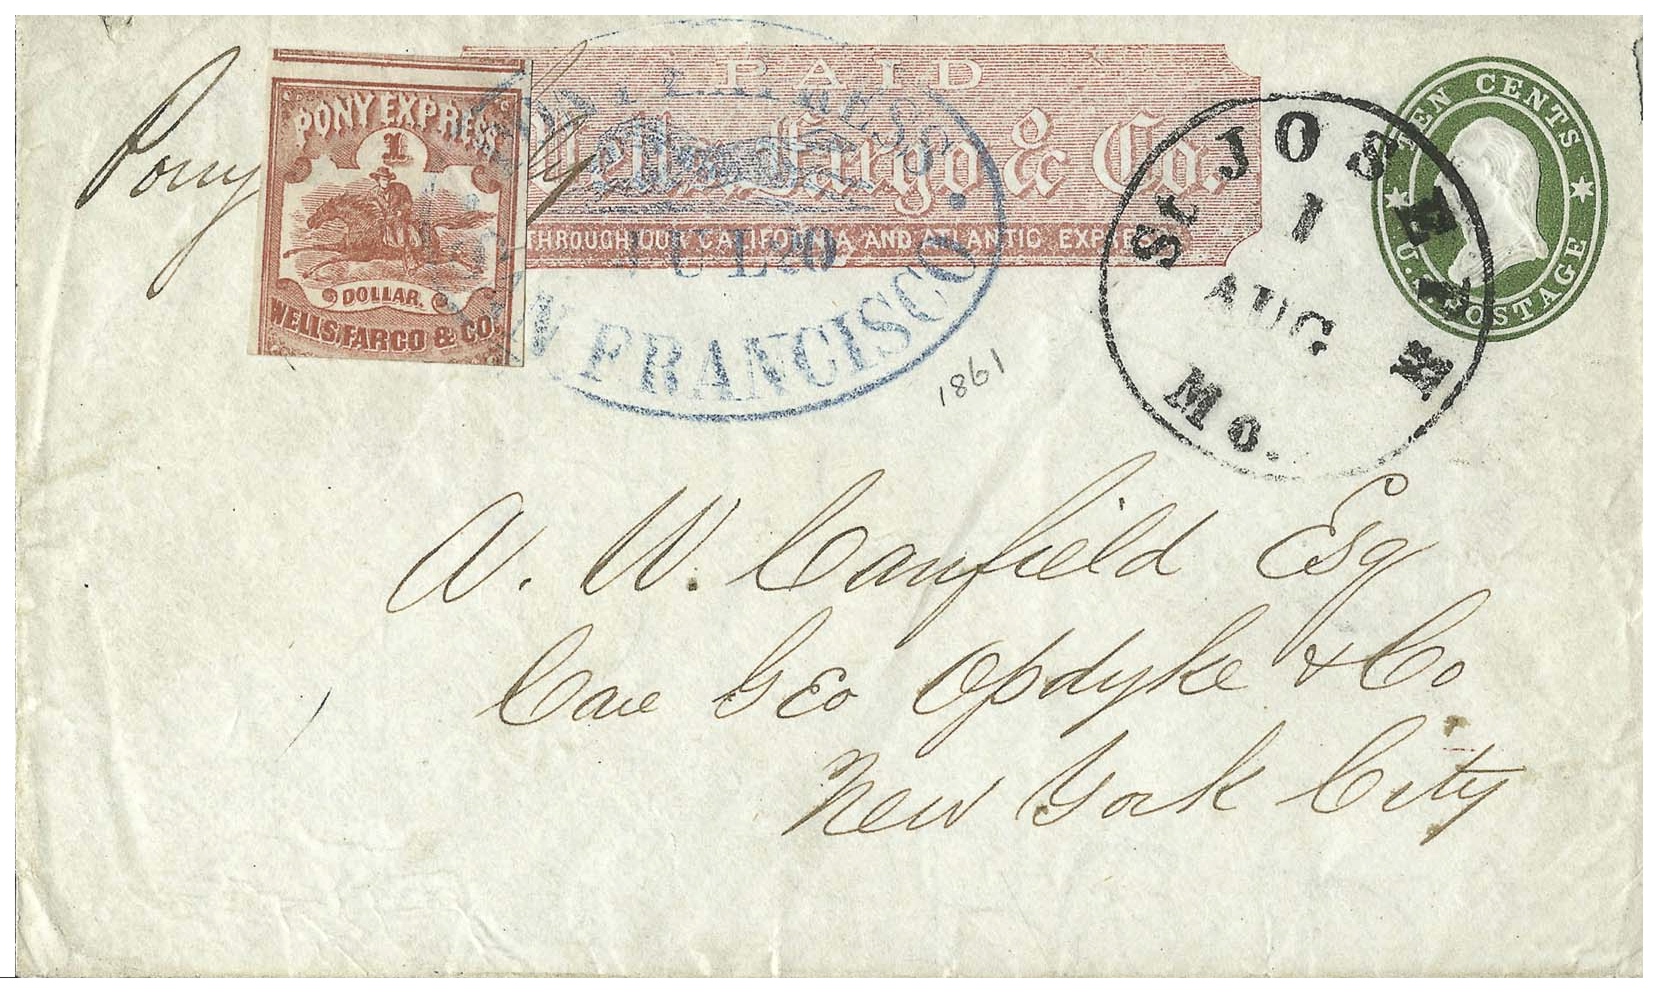 Pony
PONY EXPRESS
1
DOLLAR.
WELLS, FARGO & CO.
PAID
Wells Fargo & Co.
THROUGH OUR CALIFORNIA AND ATLANTIC EXPRESS
PONY EXPRESS.
JUL 20
SAN FRANCISCO.
1861
St JOSEPH
1
AUG
Mo.
TEN CENTS
U.S. POSTAGE
A. W. Canfield Esq
Care GEo Opdyke & Co
New York City